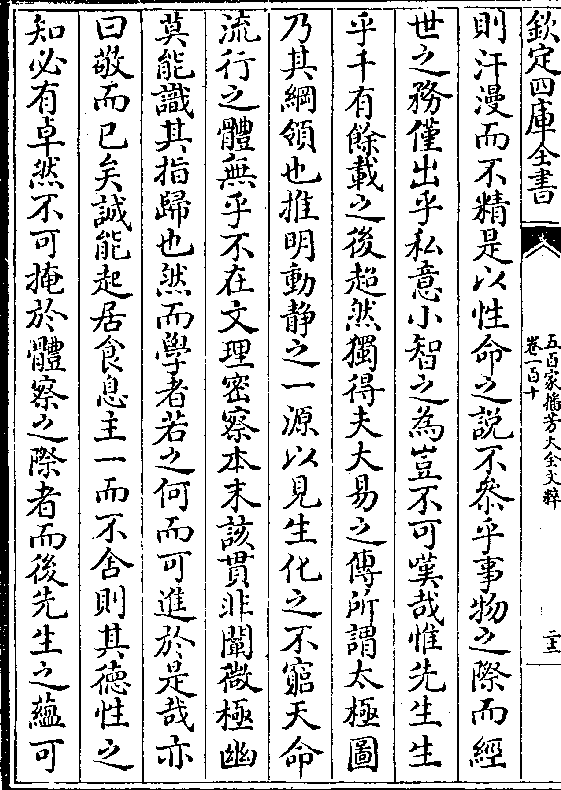 欽定四庫全書
五百家播芳大全文粹
卷一百十
二十三
則汗漫而不精是以性命之說不叅乎事物之際而經
世之務僅出乎私意小智之為豈不可嘆哉惟先生生
乎千有餘載之後超然獨得夫大易之傳所謂太極圖
乃其綱領也推明動静之一源以見生化之不窮天命
流行之體無乎不在文理密察本末該貫非闡微極幽
莫能識其指歸也然而學者若之何而可進於是哉亦
曰敬而已矣誠能起居食息主一而不舍則其德性之
知必有卓然不可掩於體察之際者而後先生之蘊可